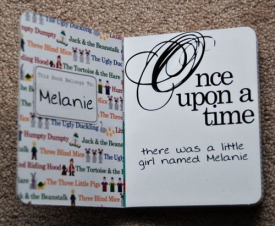 The Ugly Duckling
Humpty Dumpty Jack & the Beanstalk
Three Blind Mice
Riding Hood The Tortoise & the Hare
This Book Belongs To:
Melanie
The Ugly Duckling
Humpty Dumpty Jack & the Beanstalk
Three Blind Mice
Riding Hood The Tortoise &
The Three Little Pigs
Once
upon a
time
there was a little
girl named Melanie